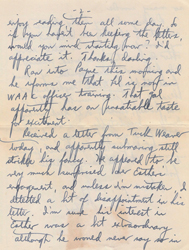 enjoy reading them all some day. So
if you haven't been keeping the letters,
would you mind starting now? I'd
appreciate it, Thanks, darling.
Ran into Paper this morning and
he informs me that Lil is now in
WAAC officer training. That gal
apparently has an insatiable taste
for excitement.
Received a letter from Turk Weaver
today, and apparently
still
big folly. He appeared to be
very much surprised
engagement, and unless I'm mistaken, I
detected a bit of disappointment in his
letter. I'm sure his interest in
Esther was a bit extraordinary
although he would never say so in